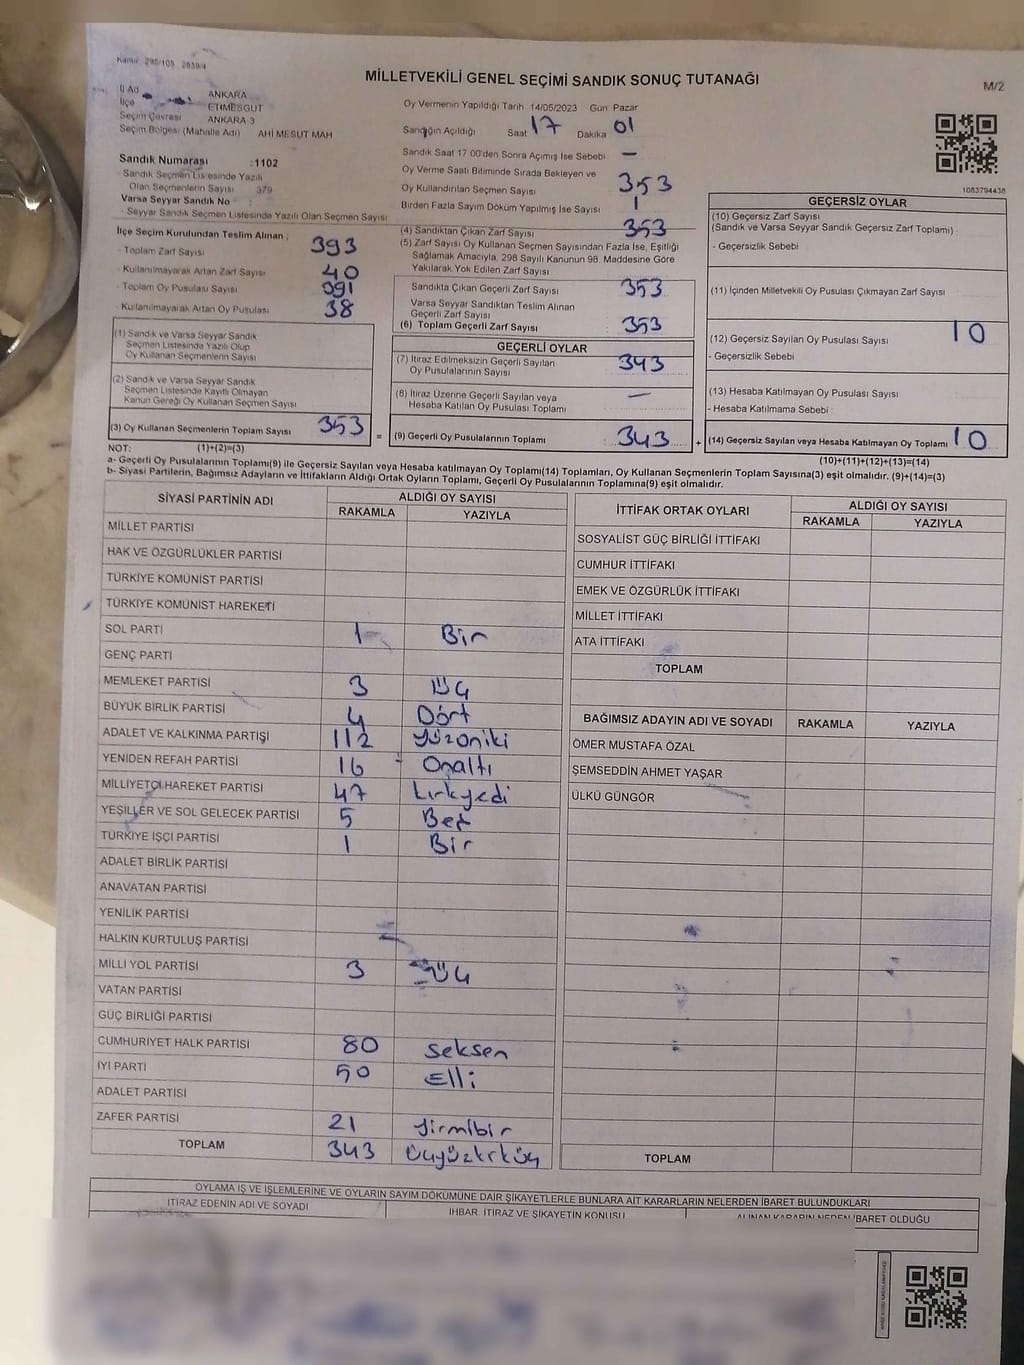 Kanun 298/105
MİLLETVEKİLİ GENEL SEÇİMİ SANDIK SONUÇ TUTANAĞI
M/2
İl Adı ANKARA
İlçe ETİMESGUT
Seçim Çevresi ANKARA 3
Seçim Bölgesi (Mahalle Adı) AHİ MESUT MAH
Sandık Numarası :1102
- Sandık Seçmen Listesinde Yazılı
Olan Seçmenlerin Sayısı 379
Varsa Seyyar Sandık No :
- Seyyar Sandık Seçmen Listesinde Yazılı Olan Seçmen Sayısı
İlçe Seçim Kurulundan Teslim Alınan ;
- Toplam Zarf Sayısı 393
- Kullanılmayarak Artan Zarf Sayısı 40
- Toplam Oy Pusulası Sayısı 391
- Kullanılmayarak Artan Oy Pusulası 38
(1) Sandık ve Varsa Seyyar Sandık
Seçmen Listesinde Yazılı Olup
Oy Kullanan Seçmenlerin Sayısı
(2) Sandık ve Varsa Seyyar Sandık
Seçmen Listesinde Kayıtlı Olmayan
Kanun Gereği Oy Kullanan Seçmen Sayısı
(3) Oy Kullanan Seçmenlerin Toplam Sayısı 353 =
Oy Vermenin Yapıldığı Tarih 14/05/2023 Gün Pazar
Sandığın Açıldığı Saat 17 Dakika 01
Sandık Saat 17:00'den Sonra Açımış İse Sebebi —
Oy Verme Saati Bitiminde Sırada Bekleyen ve
Oy Kullandırılan Seçmen Sayısı 353
Birden Fazla Sayım Döküm Yapılmış İse Sayısı 1
(4) Sandıktan Çıkan Zarf Sayısı 353
(5) Zarf Sayısı Oy Kullanan Seçmen Sayısından Fazla İse, Eşitliği
Sağlamak Amacıyla, 298 Sayılı Kanunun 98. Maddesine Göre
Yakılarak Yok Edilen Zarf Sayısı
Sandıkta Çıkan Geçerli Zarf Sayısı 353
Varsa Seyyar Sandıktan Teslim Alınan
Geçerli Zarf Sayısı
(6) Toplam Geçerli Zarf Sayısı 353
GEÇERLİ OYLAR
(7) İtiraz Edilmeksizin Geçerli Sayılan
Oy Pusulalarının Sayısı 343
(8) İtiraz Üzerine Geçerli Sayılan veya
Hesaba Katılan Oy Pusulası Toplamı —
(9) Geçerli Oy Pusulalarının Toplamı 343 +
1083794438
GEÇERSİZ OYLAR
(10) Geçersiz Zarf Sayısı
(Sandık ve Varsa Seyyar Sandık Geçersiz Zarf Toplamı)
- Geçersizlik Sebebi
(11) İçinden Milletvekili Oy Pusulası Çıkmayan Zarf Sayısı
(12) Geçersiz Sayılan Oy Pusulası Sayısı 10
- Geçersizlik Sebebi
(13) Hesaba Katılmayan Oy Pusulası Sayısı
- Hesaba Katılmama Sebebi
(14) Geçersiz Sayılan veya Hesaba Katılmayan Oy Toplamı 10
NOT: (1)+(2)=(3) (10)+(11)+(12)+(13)=(14)
a- Geçerli Oy Pusulalarının Toplamı(9) ile Geçersiz Sayılan veya Hesaba katılmayan Oy Toplamı(14) Toplamları, Oy Kullanan Seçmenlerin Toplam Sayısına(3) eşit olmalıdır. (9)+(14)=(3)
b- Siyasi Partilerin, Bağımsız Adayların ve İttifakların Aldığı Ortak Oyların Toplamı, Geçerli Oy Pusulalarının Toplamına(9) eşit olmalıdır.
SİYASİ PARTİNİN ADI ALDIĞI OY SAYISI
RAKAMLA YAZIYLA
MİLLET PARTİSİ
HAK VE ÖZGÜRLÜKLER PARTİSİ
TÜRKİYE KOMÜNİST PARTİSİ
TÜRKİYE KOMÜNİST HAREKETİ
SOL PARTİ 1 Bir
GENÇ PARTİ
MEMLEKET PARTİSİ 3 Üç
BÜYÜK BİRLİK PARTİSİ 4 Dört
ADALET VE KALKINMA PARTİSİ 112 Yüzoniki
YENİDEN REFAH PARTİSİ 16 Onaltı
MİLLİYETÇİ HAREKET PARTİSİ 47 kırkyedi
YEŞİLLER VE SOL GELECEK PARTİSİ 5 Beş
TÜRKİYE İŞÇİ PARTİSİ 1 Bir
ADALET BİRLİK PARTİSİ
ANAVATAN PARTİSİ
YENİLİK PARTİSİ
HALKIN KURTULUŞ PARTİSİ
MİLLİ YOL PARTİSİ 3 Üç
VATAN PARTİSİ
GÜÇ BİRLİĞİ PARTİSİ
CUMHURİYET HALK PARTİSİ 80 seksen
İYİ PARTİ 50 Elli
ADALET PARTİSİ
ZAFER PARTİSİ 21 Yirmibir
TOPLAM 343 Üçyüzkırküç
İTTİFAK ORTAK OYLARI ALDIĞI OY SAYISI
RAKAMLA YAZIYLA
SOSYALİST GÜÇ BİRLİĞİ İTTİFAKI
CUMHUR İTTİFAKI
EMEK VE ÖZGÜRLÜK İTTİFAKI
MİLLET İTTİFAKI
ATA İTTİFAKI
TOPLAM
BAĞIMSIZ ADAYIN ADI VE SOYADI RAKAMLA YAZIYLA
ÖMER MUSTAFA ÖZAL
ŞEMSEDDİN AHMET YAŞAR
ÜLKÜ GÜNGÖR
TOPLAM
OYLAMA İŞ VE İŞLEMLERİNE VE OYLARIN SAYIM DÖKÜMÜNE DAİR ŞİKAYETLERLE BUNLARA AİT KARARLARIN NELERDEN İBARET BULUNDUKLARI
İTİRAZ EDENİN ADI VE SOYADI İHBAR, İTİRAZ VE ŞİKAYETİN KONUSU ALINAN KARARIN NEDEN İBARET OLDUĞU